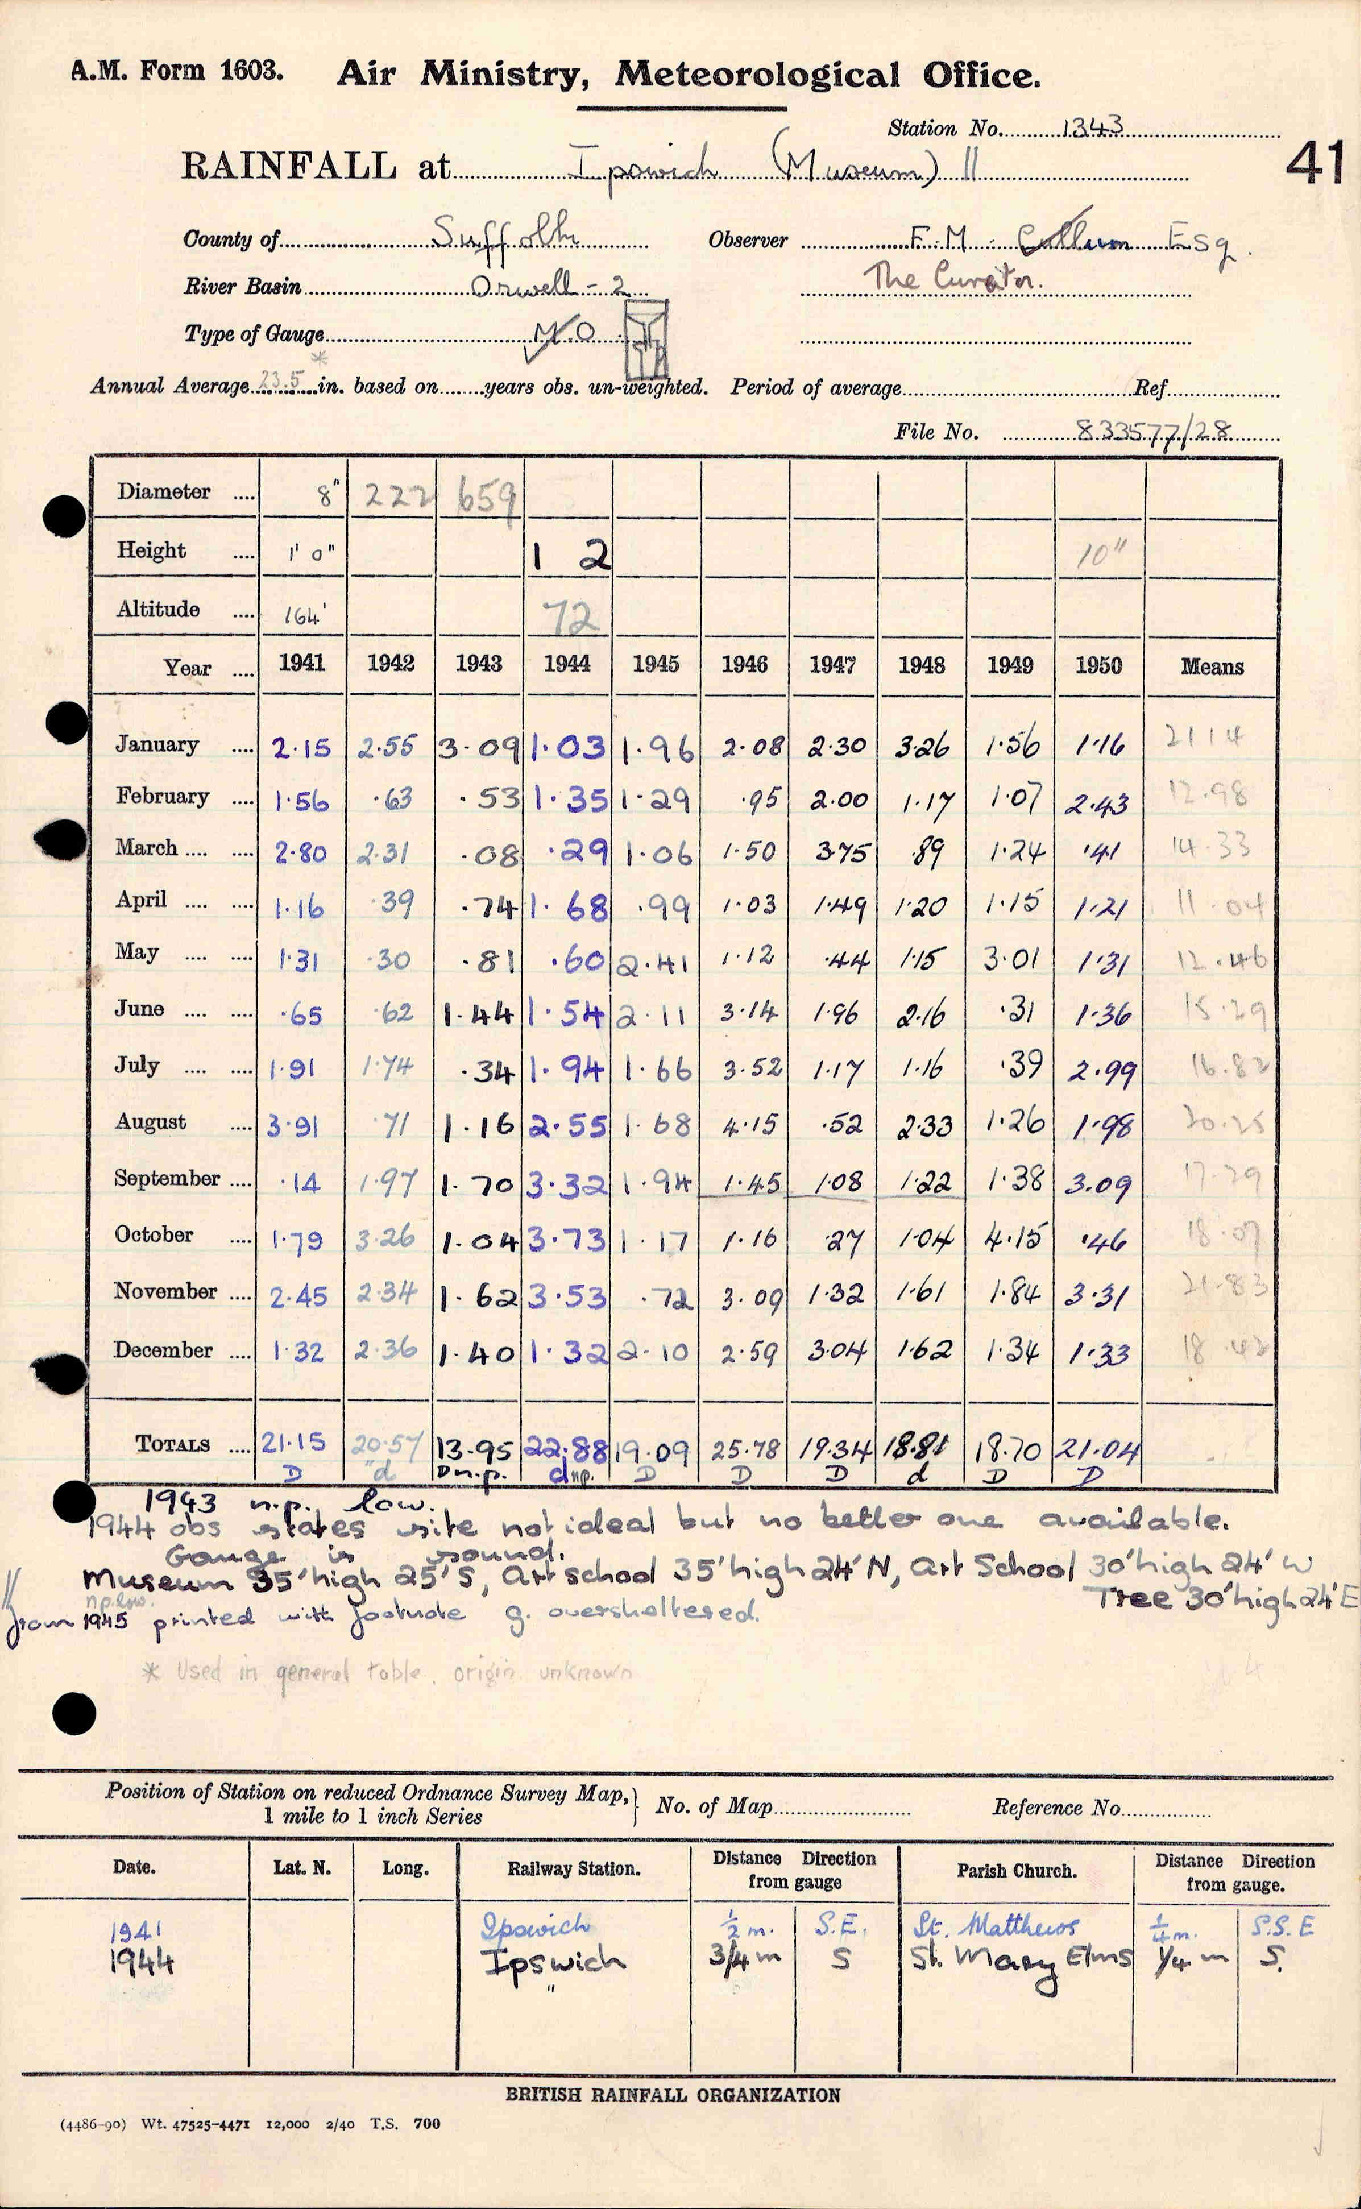 A.M. Form 1603. Air Ministry, Meteorological Office.
Station No. 1343
41
RAINFALL at Ipswich (Museum) II
County of Suffolk Observer F. M. Cullum Esq.
River Basin Orwell - 2 The Curator.
Type of Gauge M.O
Annual Average 23.5* in. based on years obs. un-weighted. Period of average Ref.
File No. 833577/28
Diameter .... 8" 222 659
Height .... 1' 0" 1 2 10"
Altitude .... 164' 72
Year .... 1941 1942 1943 1944 1945 1946 1947 1948 1949 1950 Means
January .... 2.15 2.55 3.09 1.03 1.96 2.08 2.30 3.26 1.56 1.16 21 14
February .... 1.56 .63 .53 1.35 1.29 .95 2.00 1.17 1.07 2.43 12.98
March .... .... 2.80 2.31 .08 .29 1.06 1.50 3.75 .89 1.24 .41 14.33
April .... .... 1.16 .39 .74 1.68 .99 1.03 1.49 1.20 1.15 1.21 11.04
May .... .... 1.31 .30 .81 .60 2.41 1.12 .44 1.15 3.01 1.31 12.46
June .... .... .65 .62 1.44 1.54 2.11 3.14 1.96 2.16 .31 1.36 15.29
July .... .... 1.91 1.74 .34 1.94 1.66 3.52 1.17 1.16 .39 2.99 16.82
August .... 3.91 .71 1.16 2.55 1.68 4.15 .52 2.33 1.26 1.98 20.25
September .... .14 1.97 1.70 3.32 1.94 1.45 1.08 1.22 1.38 3.09 17.29
October .... 1.79 3.26 1.04 3.73 1.17 1.16 .27 1.04 4.15 .46 18.07
November .... 2.45 2.34 1.62 3.53 .72 3.09 1.32 1.61 1.84 3.31 21.83
December .... 1.32 2.36 1.40 1.32 2.10 2.59 3.04 1.62 1.34 1.33 18.42
TOTALS .... 21.15 20.57 13.95 22.88 19.09 25.78 19.34 18.81 18.70 21.04
D d D n.p. d np. D D D d D D
1943 n.p. low.
1944 obs states site not ideal but no better one available.
Gauge is sound.
Museum 35' high 25' S, Art School 35' high 24' N, Art School 30' high 24' W
Tree 30' high 24' E
np. low.
from 1945 printed with footnote g. oversheltered.
* Used in general table. origin unknown
Position of Station on reduced Ordnance Survey Map,
1 mile to 1 inch Series
No. of Map Reference No.
Date. Lat. N. Long. Railway Station. Distance Direction from gauge Parish Church. Distance Direction from gauge.
1941 Ipswich ½ m. S.E. St. Matthews ¼ m. S.S.E
1944 Ipswich 3/4 m S St. Mary Elms 1/4 m S.
"
BRITISH RAINFALL ORGANIZATION
(4486-90) Wt. 47525-4471 12,000 2/40 T.S. 700